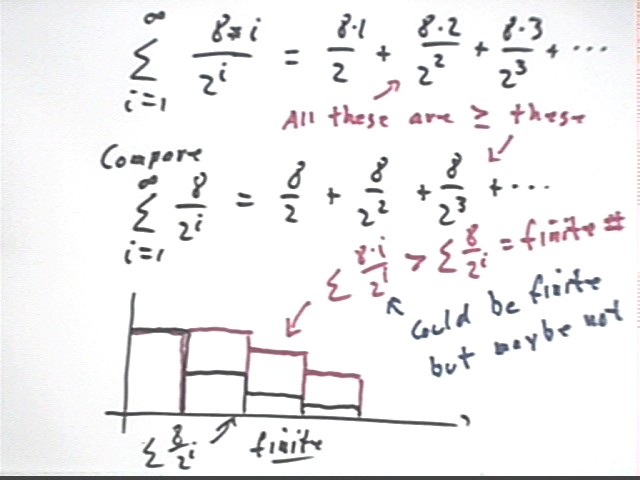 ∞
∑ 8*i / 2^i = 8·1/2 + 8·2/2² + 8·3/2³ + ···
i=1
All these are ≥ these
Compare
∞
∑ 8/2^i = 8/2 + 8/2² + 8/2³ + ···
i=1
∑ 8·i/2^i > ∑ 8/2^i = finite #
could be finite
but maybe not
∑ 8/2^i finite